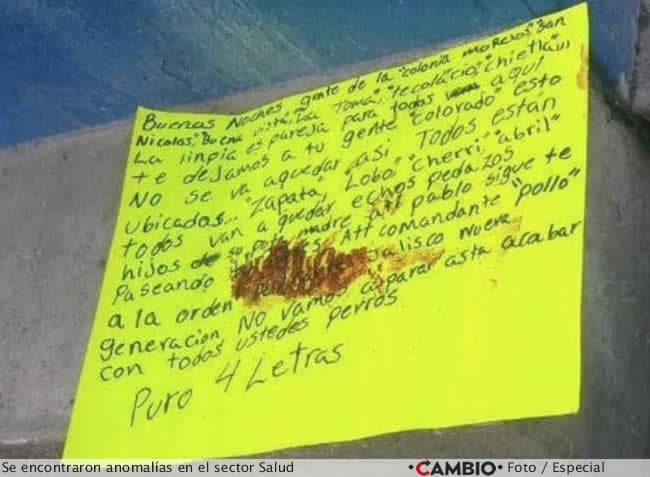 Buenas Noches gente de la "colonia morelos" "San
Nicolas," "Buena vista," "La Toma," "tecolacio," "Chietla"
La linpia es pareja para todos aqui
te dejamos a tu gente "colorado" esto
No se va aquedar asi Todos están
ubicados... "Zapata," "Lobo," "Cherri," "abril"
todos van a quedar echos pedazos
hijos de su puta madre att pablo sigue te
Paseando Att comandante "pollo"
a la orden jalisco nueva
generacion No vamos a parar asta acabar
con todos ustedes perros
Puro 4 Letras
Se encontraron anomalías en el sector Salud
•CAMBIO• Foto / Especial